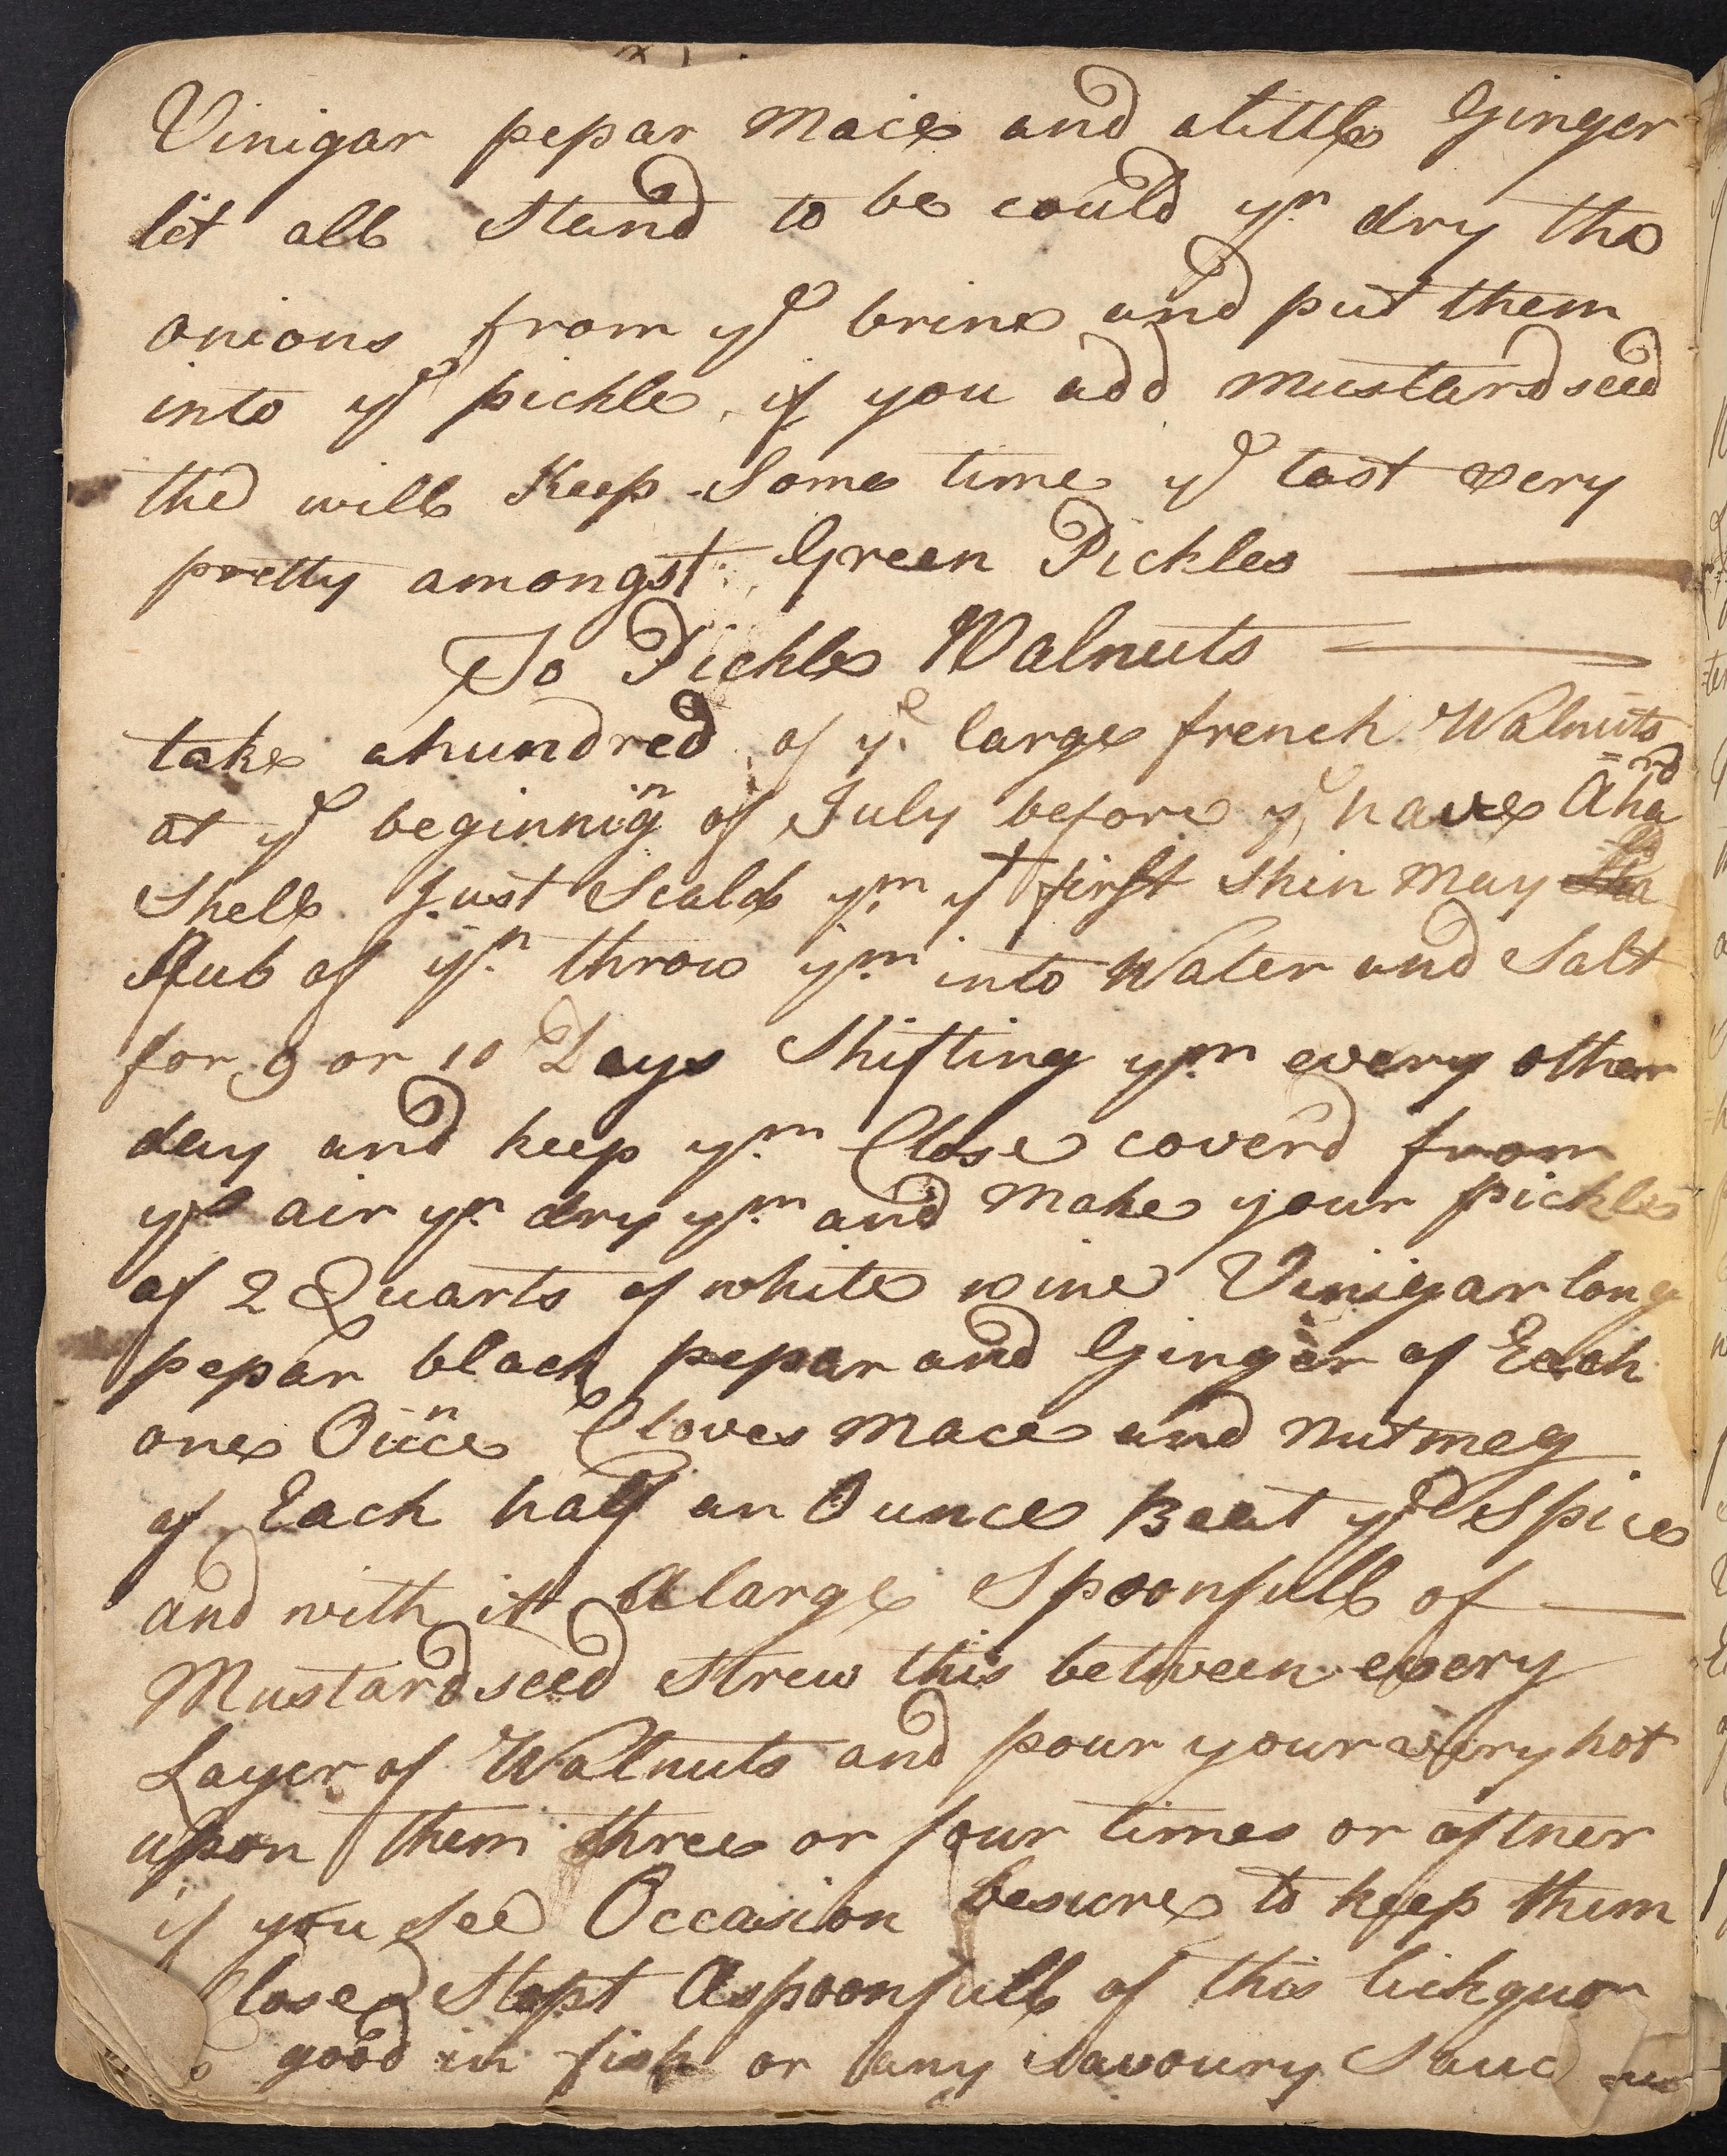 Vinigar pepar Mace and alittle Ginger
let all Stand to be could yn dry the
onions from ye brine and put them
into ye pickle, if you add mustardseed
the will Keep Some time ye tast very
pretty amongst Green Pickles
To Pickle Walnuts
take ahundred of ye large french Walnuts
at ye beginnig of July before ye have A ha=rd
Shell Just Scald ym yt first Skin May
Rub of yn throw ym into Water and Salt
for 9 or 10 Days Shifting ym every other
day and keep ym Close coverd from
ye air yn dry ym and Make your pickle
of 2 Quarts of white wine Vinigar long
pepar black pepar and Ginger of Each
one Ounce Cloves Mace and Nutmeg
of Each half an Ounce Beat ye Spice
and with it A large Spoonfull of
Mustardseed strew this between every
Layer of Walnuts and pour your very hot
upon them three or four times or oftner
if you See Occasion besure to keep them
Close Stopt A spoonfull of this lickquor
good in fish or any Savoury Sauce